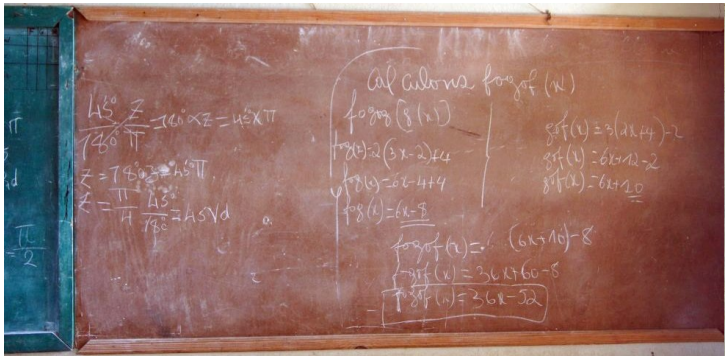 π
d
= π/2
45°/180° Z/π = 180° × Z = 45° × π
Z = 180°Z = 45°π
Z = π/4 45°/180° = 45Vd
Cal culons fogof (x)
fogog [g(x)]
fog(x) = 2(3x-2)+4
fog(x) = 6x-4+4
fog(x) = 6x-8
gof(x) = 3(2x+4)-2
gof(x) = 6x+12-2
gof(x) = 6x+10
fogof(x) = (6x+10)-8
fogof(x) = 36x+60-8
fogof(x) = 36x-52